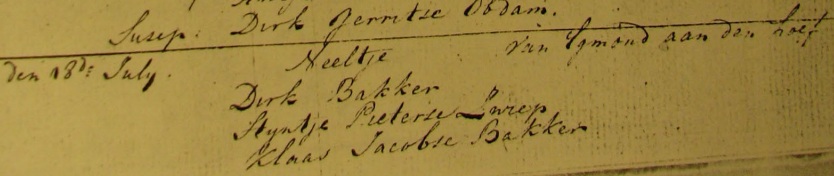 Susep: Dirk Jerritse Obdam.
van Egmond aan den hoef
den 18d: July. Neeltje
Dirk Bakker
Styntje Pieterse Zwep
Klaas Jacobse Bakker